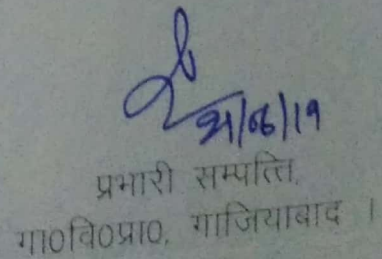 21/06/19
प्रभारी सम्पत्ति,
गा0वि0प्रा0, गाजियाबाद ।